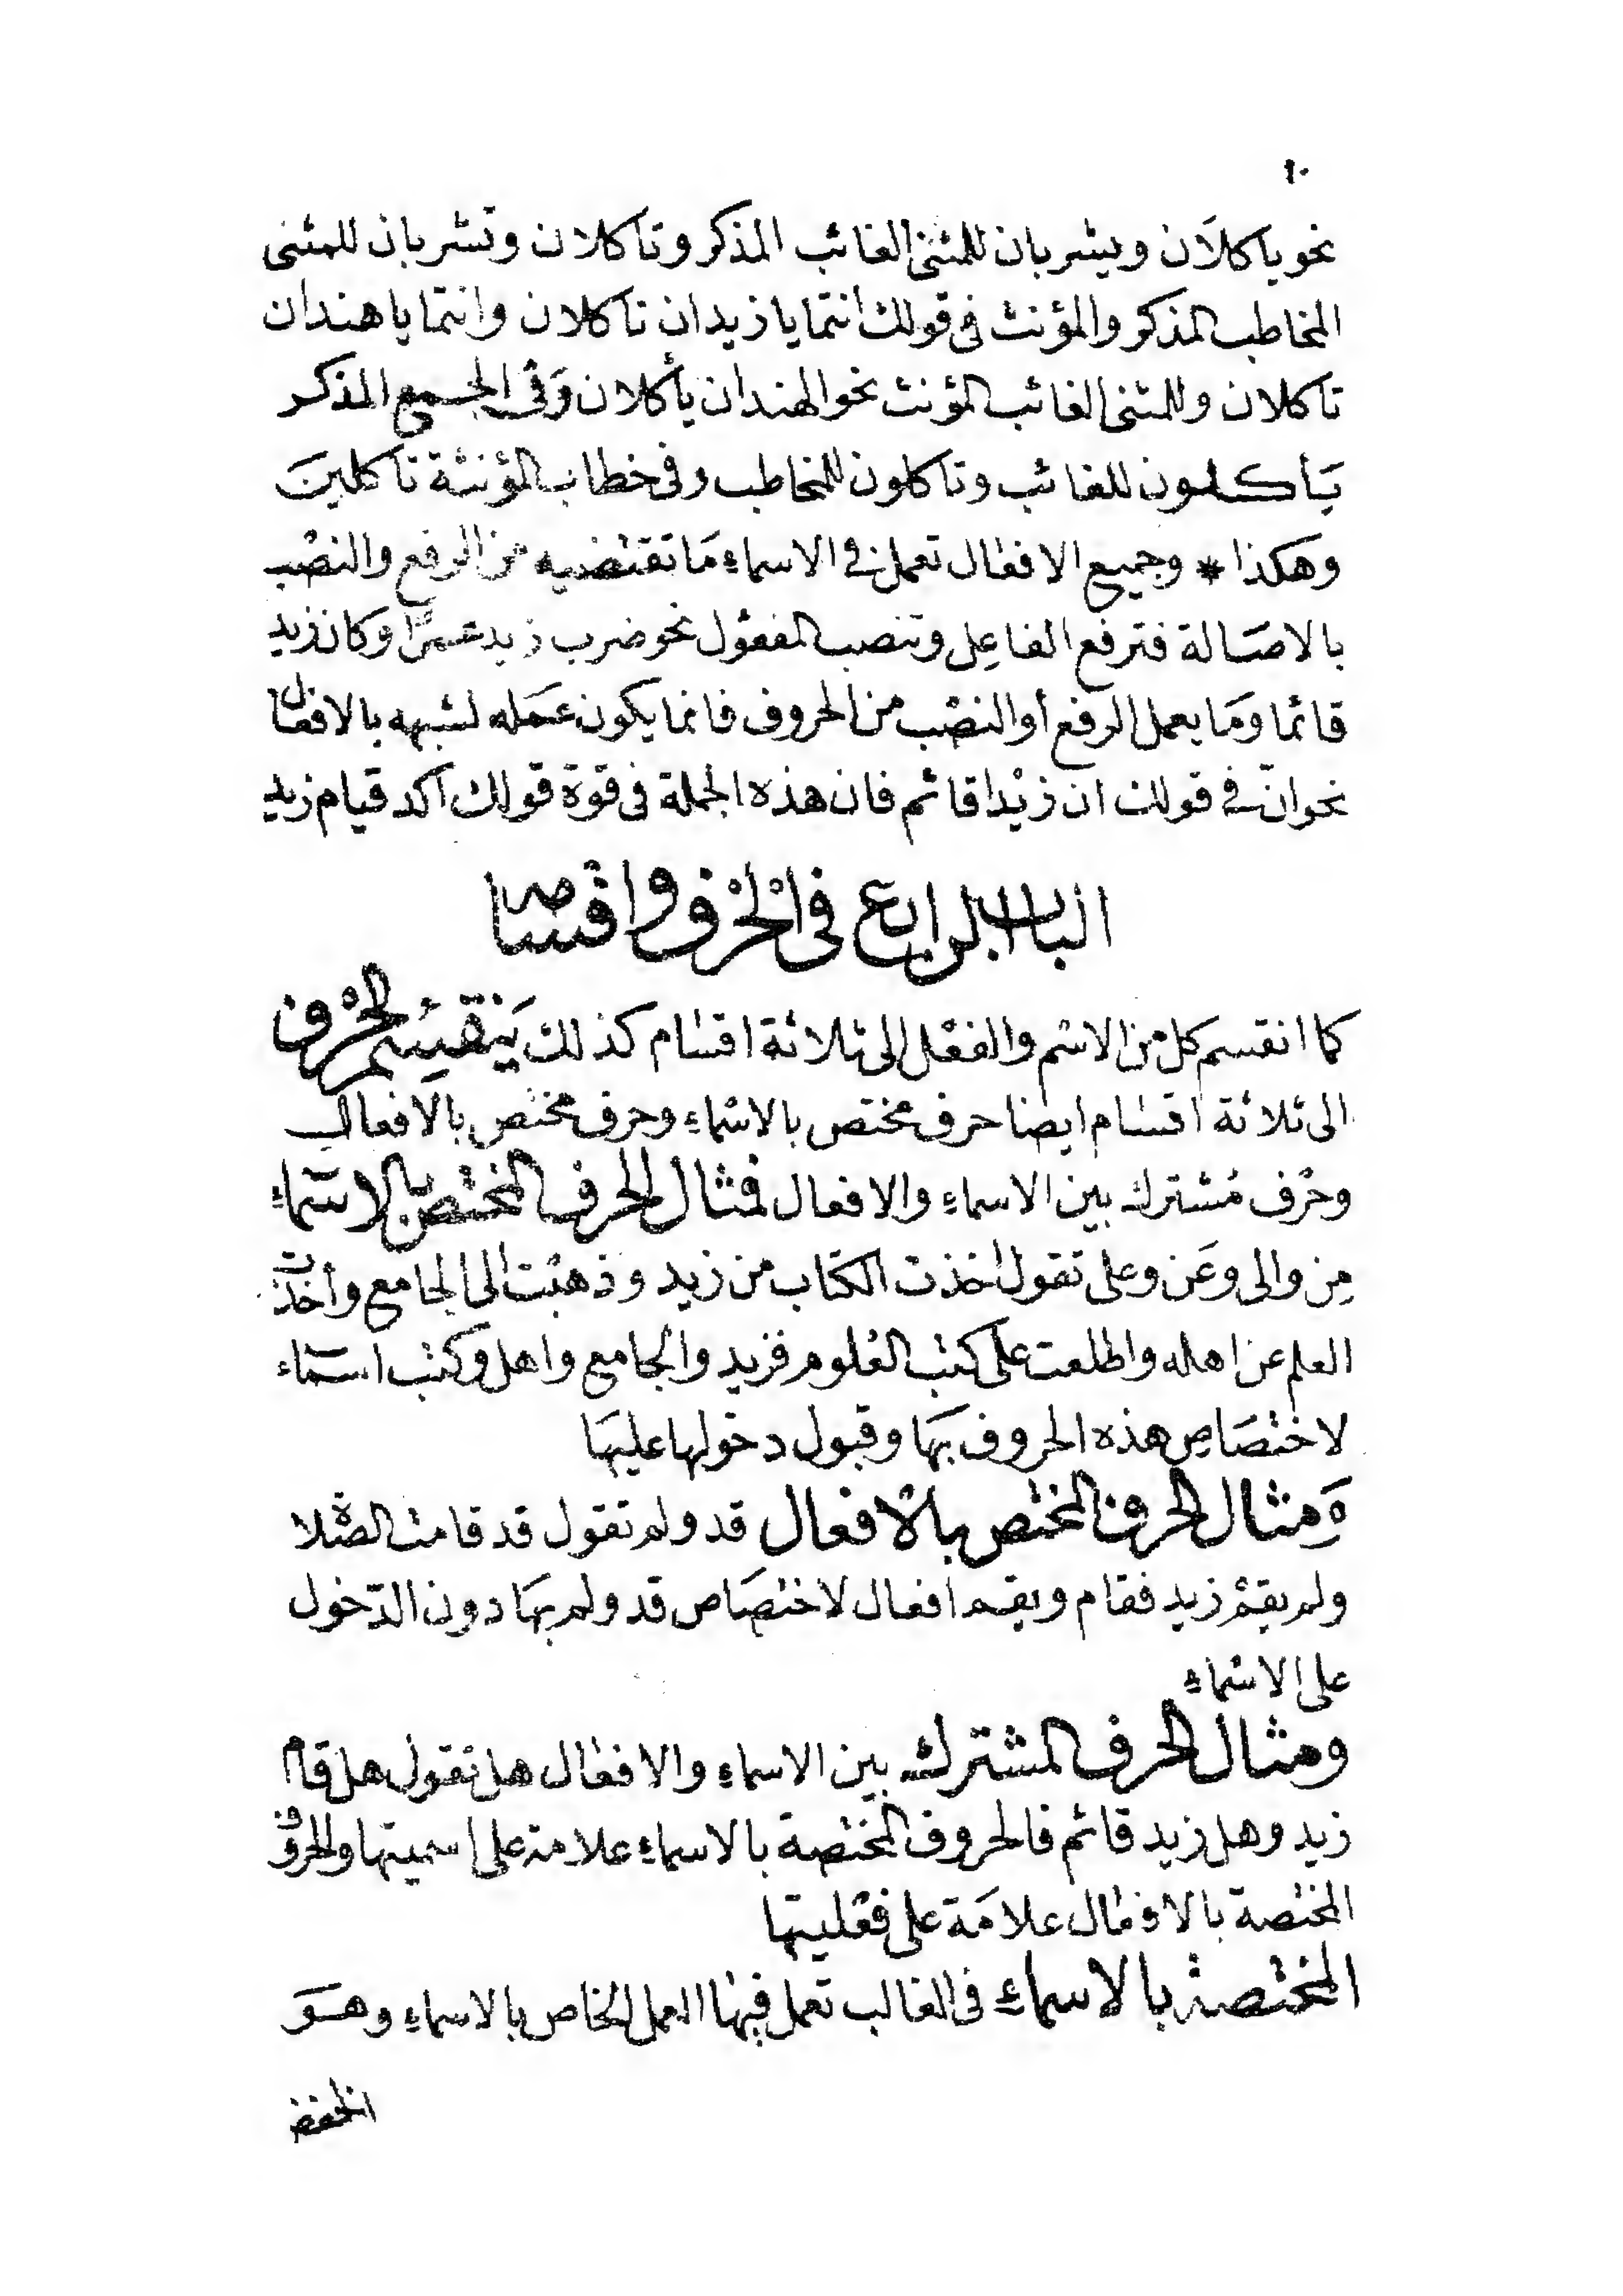 ١٠
نحو ياكلان ويشربان للمثنى الغائب المذكر وتاكلان وتشربان للمثنى
المخاطب المذكر والمؤنث فى قولك انتما يا زيدان تاكلان وانتما يا هندان
تاكلان وللمثنى الغائب المؤنث نحو الهندان يأكلان وَفى الجمع المذكر
يَأكلون للغائب وتاكلون للمخاطب وفى خطاب المؤنثة تاكلينَ
وهكذا * وجميع الافعال تعمل فى الاسماء مَا تقتضيه من الرفع والنصْب
بالاصَالة فترفع الفاعِل وتنصب المفعول نحو ضرب زيد عمرًا وكان زيد
قائما ومَا يعمل الرفع أو النصْب من الحروف فانما يكون عَمله لشبهه بالافعال
نحو انّ فى قولك ان زيْدا قائم فان هذه الجملة فى قوة قولك اكد قيام زيد
الباب الرابع فى الْحرْف واقسامه
كما انقسم كل من الاسْم والفعْل الى ثلاثة اقسَام كذلك يَنقسِم الحْرف
الى ثلاثة اقسَام ايضا حرف مختص بالاسْماءِ وحرف مختص بالافعال
وحْرف مُشترك بين الاسماءِ والافعال فمثال الحرف المختص بالاسْماءِ
مِن والى وعَن وعلى تقول اخذت الكتاب من زيد وذهبْت الى الجامع وأخذت
العلم عن اهله واطلعت على كتب العُلوم فزيد والجامع واهل وكتب اسْماء
لاختصَاصِ هذه الحروف بهَا وقبول دخولها عليهَا
وَمثال الحرف المختص بالافعال قد ولم تقول قد قامت الصّلاة
ولم يقمْ زيد فقام ويقم افعال لاختصَاص قد ولم بهَا دون الدّخول
على الاسْماءِ
ومثال الحرف المشترك بين الاسماءِ والافعال هل تقول هل قام
زيد وهل زيد قائم فالحروف المختصة بالاسماءِ علامة على اسميتها والحروف
المختصة بالافعال علامَة على فعْليتها
المختصة بالاسماءِ فى الغالب تعمل فيهَا العمل الخاص بالاسماءِ وهوَ
الخفض